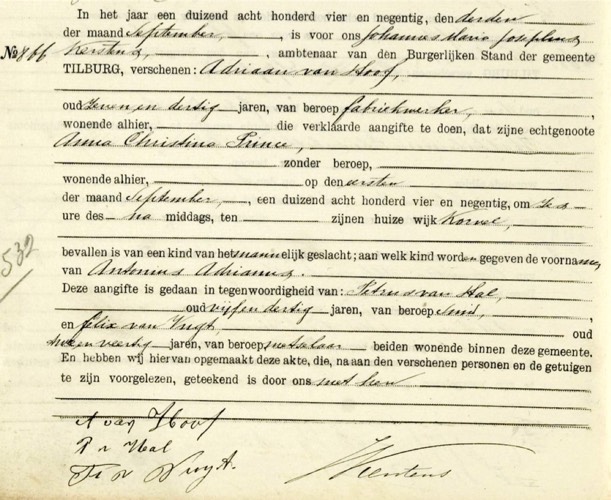 In het jaar een duizend acht honderd vier en negentig, den derden
der maand September, is voor ons Johannes Maria Josephus
No 866 Kerstens, ambtenaar van den Burgerlijken Stand der gemeente
TILBURG, verschenen: Adriaan van Hoof,
oud zeven en dertig jaren, van beroep fabriekwerker,
wonende alhier, die verklaarde aangifte te doen, dat zijne echtgenoote
Anna Christina Prince,
zonder beroep,
wonende alhier, op den eersten
der maand September, een duizend acht honderd vier en negentig, om zes
ure des na middags, ten zijnen huize wijk Korvel,
532
bevallen is van een kind van het mannelijk geslacht; aan welk kind worden gegeven de voornamen
van Antonius Adrianus.
Deze aangifte is gedaan in tegenwoordigheid van: Petrus van Hal,
oud vijf en dertig jaren, van beroep smid,
en Felix van Vugt, oud
twee en veertig jaren, van beroep metselaar beiden wonende binnen deze gemeente.
En hebben wij hiervan opgemaakt deze akte, die, na aan den verschenen personen en de getuigen
te zijn voorgelezen, geteekend is door ons met hen
A van Hoof
P v Hal
F v Vugt.
Kerstens